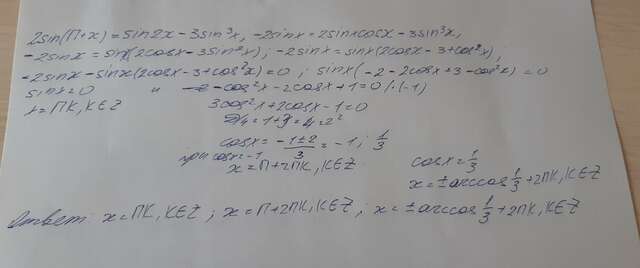 2sin(П+x)=sin2x-3sin³x, -2sinx=2sinxcosx-3sin³x,
-2sinx=sinx(2cosx-3sin²x); -2sinx=sinx(2cosx-3+cos²x);
-2sinx-sinx(2cosx-3+cos²x)=0; sinx(-2-2cosx+3-cos²x)=0
sinx=0 и -cos²x-2cosx+1=0/·(-1)
x=ПK, K∈Z 3cos²x+2cosx-1=0
D/4=1+3=4=2²
cosx=(-1±2)/3=-1; 1/3
при cosx=-1 cosx=1/3
x=П+2ПK, K∈Z x=±arccos 1/3+2ПK, K∈Z
Ответ: x=ПK, K∈Z; x=П+2ПK, K∈Z; x=±arccos 1/3+2ПK, K∈Z